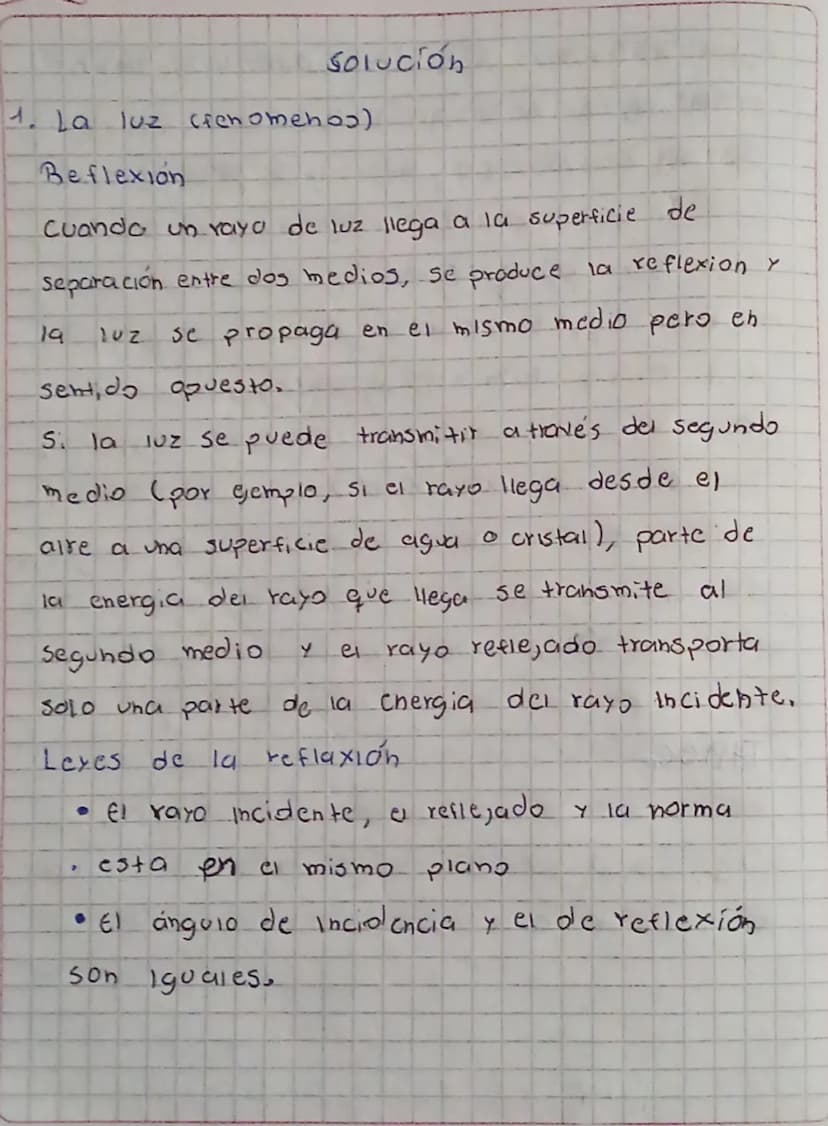 Solución
1. La luz (fenomenos)
Reflexión
Cuando un rayo de luz llega a la superficie de
separación entre dos medios, se produce la reflexion y
la luz se propaga en el mismo medio pero en
sentido opuesto.
Si la luz se puede transmitir a través del segundo
medio (por ejemplo, si el rayo llega desde el
aire a una superficie de agua o cristal), parte de
la energia del rayo que llega se transmite al
segundo medio y el rayo reflejado transporta
solo una parte de la energia del rayo incidente.
Leyes de la reflaxión
• El rayo incidente, el reflejado y la norma
. esta en el mismo plano
• El ángulo de incidencia y el de reflexión
son iguales.